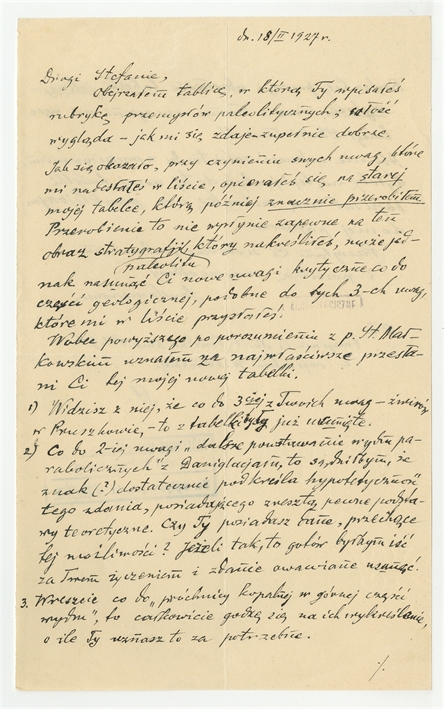 dn. 18/II 1927 r.
Drogi Stefanie,
Obejrzałem tablicę, w którą Ty wpisałeś
rubrykę przemysłów paleolitycznych; całość
wygląda – jak mi się zdaje – zupełnie dobrze.
Jak się okazało, przy czynieniu swych uwag, które
mi nadesłałeś w liście, opierałeś się na starej
mojej tabelce, którą później znacznie przerobiłem.
Przerobienie to nie wpłynie zapewne na ten
obraz stratygrafji paleolitu, który nakreśliłeś, może jed-
nak nasunąć Ci nowe uwagi krytyczne co do
części geologicznej, podobne do tych 3-ch uwag,
które mi w liście przysłałeś.
Wobec powyższego po porozumieniu z p. St. Mał-
kowskim uznałem za najwłaściwsze przesła-
ni Ci tej mojej nowej tabelki.
1) Widzisz z niej, że co do 3-ciej z Twoich uwag – żwirów
w Pruszkowie, – to z tabelki są już usunięte.
2) Co do 2-iej uwagi „dalsze powstawanie wydm pa-
rabolicznych" z Daniglacjałem, to sądziłbym, że
znak (?) dostatecznie podkreśla hypotetyczność
tego zdania, posiadającego zresztą pewne podsta-
wy teoretyczne. Czy Ty posiadasz dane, przeczące
tej możliwości? Jeżeli tak, to gotów byłbym iść
za Twem życzeniem i zdanie omawiane usunąć.
3. Wreszcie co do „próchnicy kopalnej w górnej części
wydm", to całkowicie godzę się na ich wykreślenie,
o ile Ty uznasz to za potrzebne.
·/.